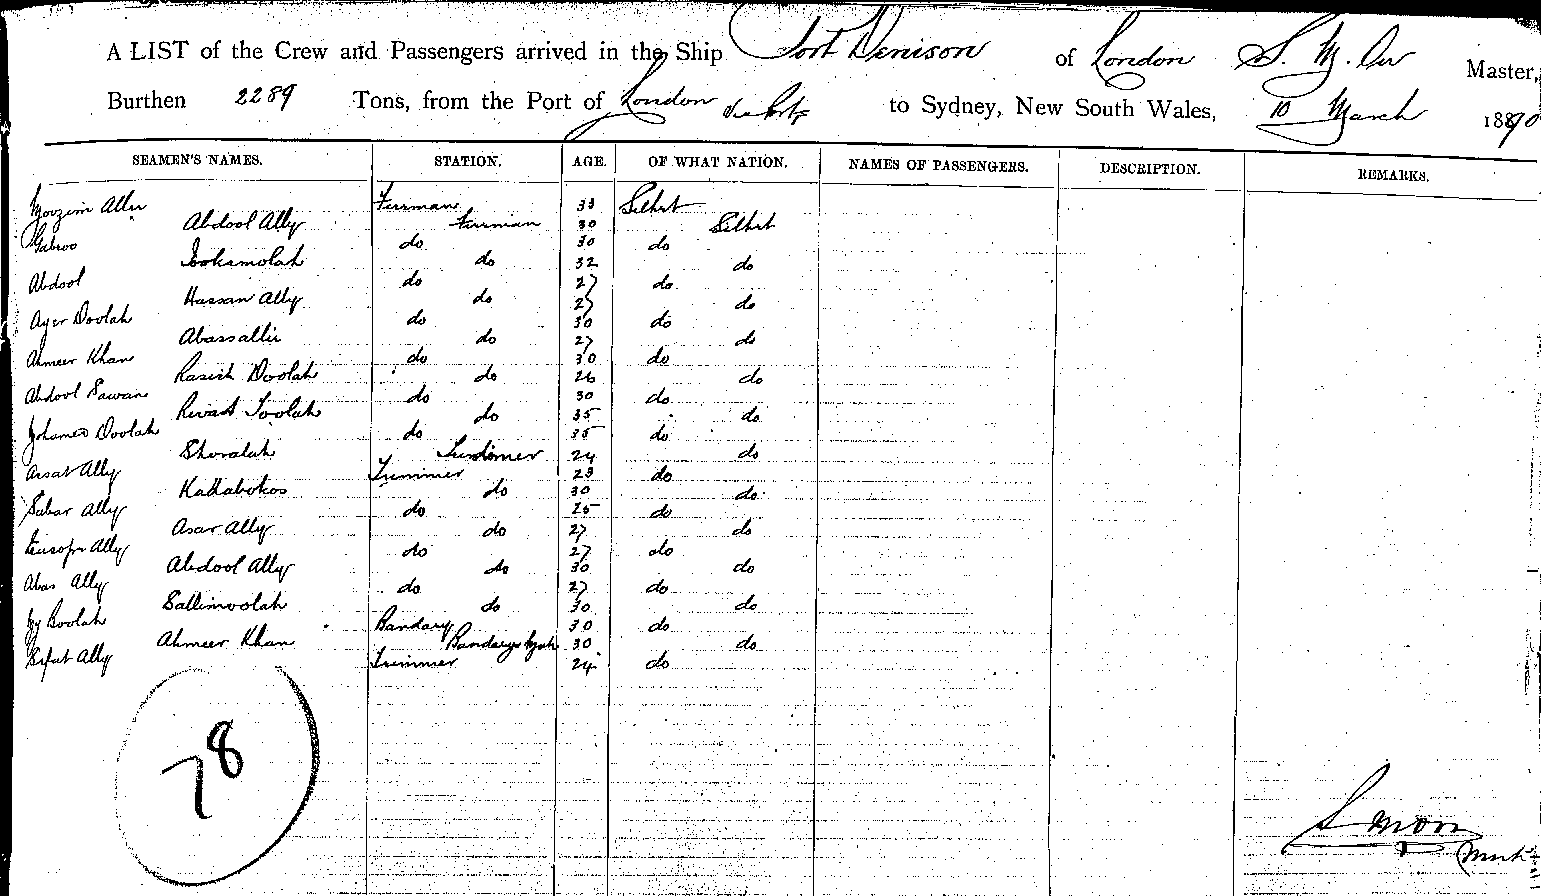 A LIST of the Crew and Passengers arrived in the Ship Fort Denison of London S. M. Orr Master,
Burthen 2289 Tons, from the Port of London via Ports to Sydney, New South Wales, 10 March 1890
SEAMEN'S NAMES. STATION. AGE. OF WHAT NATION. NAMES OF PASSENGERS. DESCRIPTION. REMARKS.
Moozim Fireman 33 Silhet
Abdool Ally Fireman 30 Silhet
Gabroo do 30 do
do 32 do
Abdool do 27 do
Hassan Ally do 27 do
Ayer Doolah do 30 do
Abassallie do 27 do
Ahmeer Khan do 30 do
Doolah do 26 do
Abdool do 30 do
Toolah do 35 do
Mohamed Doolah do 35 do
24 do
Arsat Ally Trimmer 23 do
Kallabokos do 30 do
Sabar Ally do 25 do
Asar Ally do 27 do
Eusope Ally do 27 do
Abdool Ally do 30 do
Abas Ally do 27 do
Sallimoolah do 30 do
Boolah Bandary 30 do
Ahmeer Khan Bandarys 30 do
Ally Trimmer 24 do
78